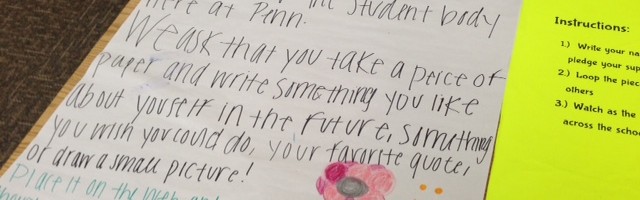 the student body
here at Penn.
We ask that you take a peice of
paper and write something you like
about yourself in the future, something
you wish you could do, your favorite quote,
or draw a small picture!
Place it on the
Instructions:
1.) Write your na
pledge your sup
2.) Loop the piec
others
3.) Watch as the
across the schoo